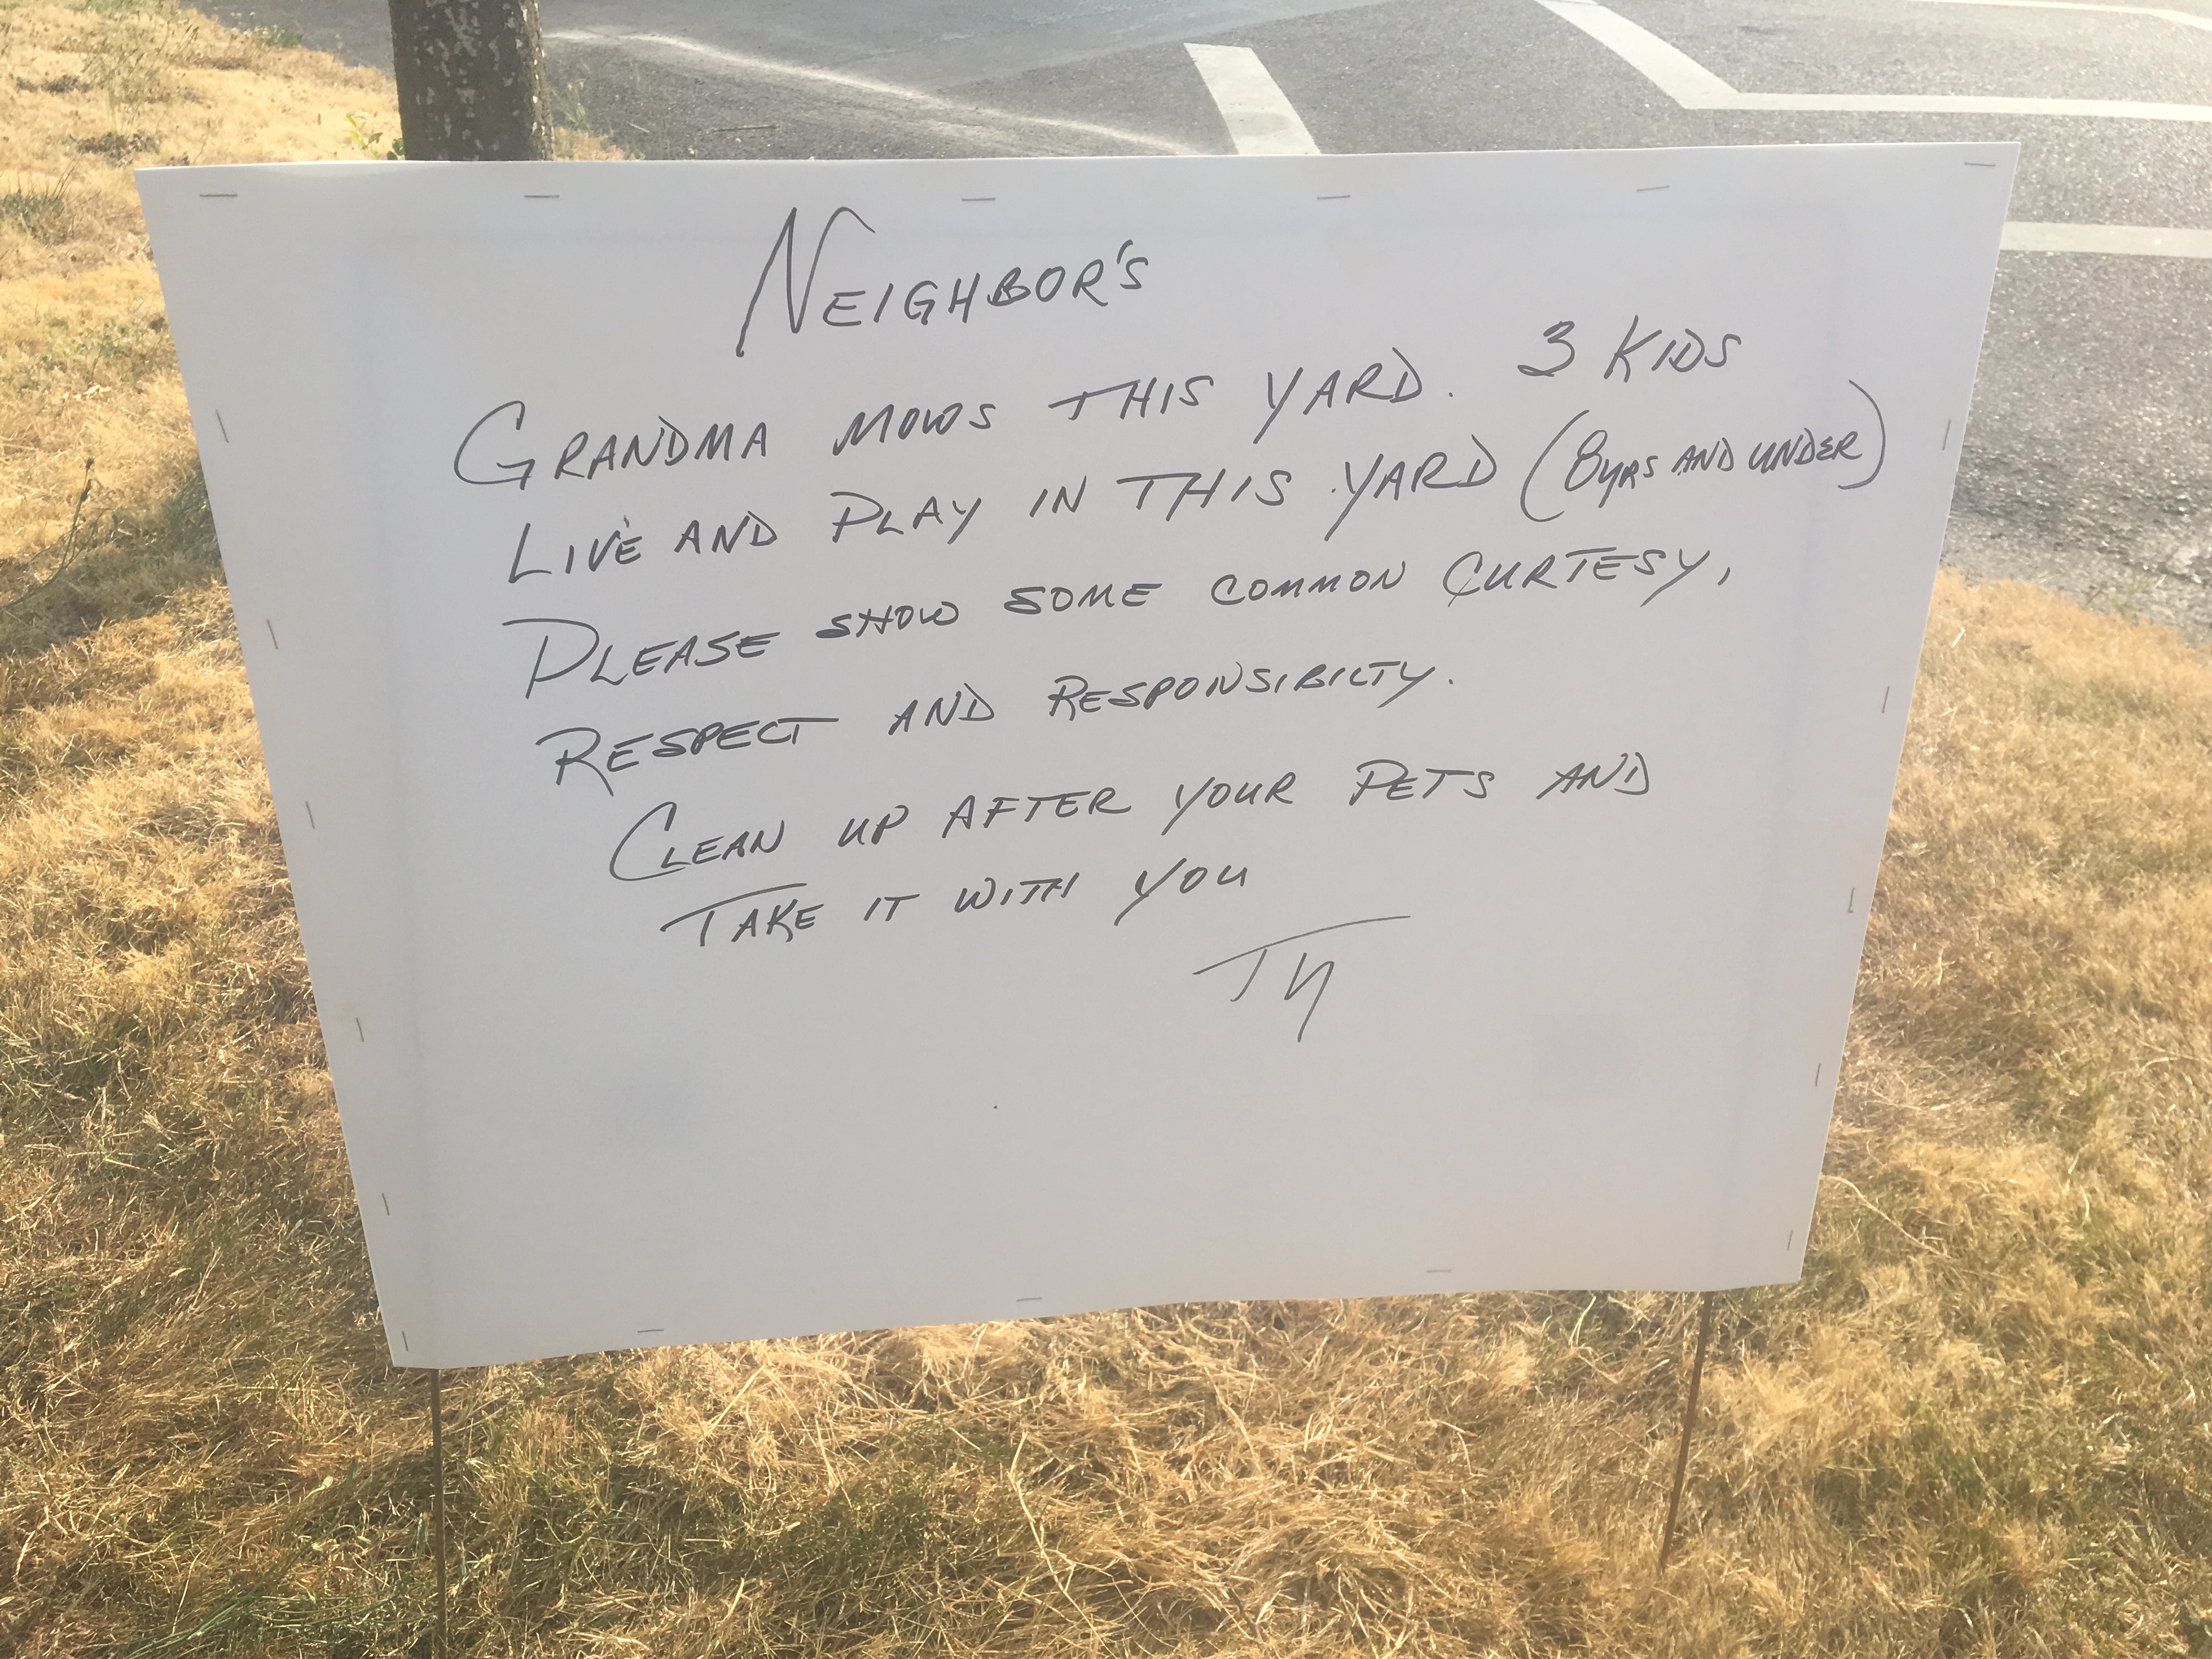 NEIGHBOR'S
GRANDMA MOWS THIS YARD. 3 KIDS
LIVE AND PLAY IN THIS YARD (8YRS AND UNDER)
PLEASE SHOW SOME COMMON CURTESY,
RESPECT AND RESPONSIBILTY.
CLEAN UP AFTER YOUR PETS AND
TAKE IT WITH YOU
TY